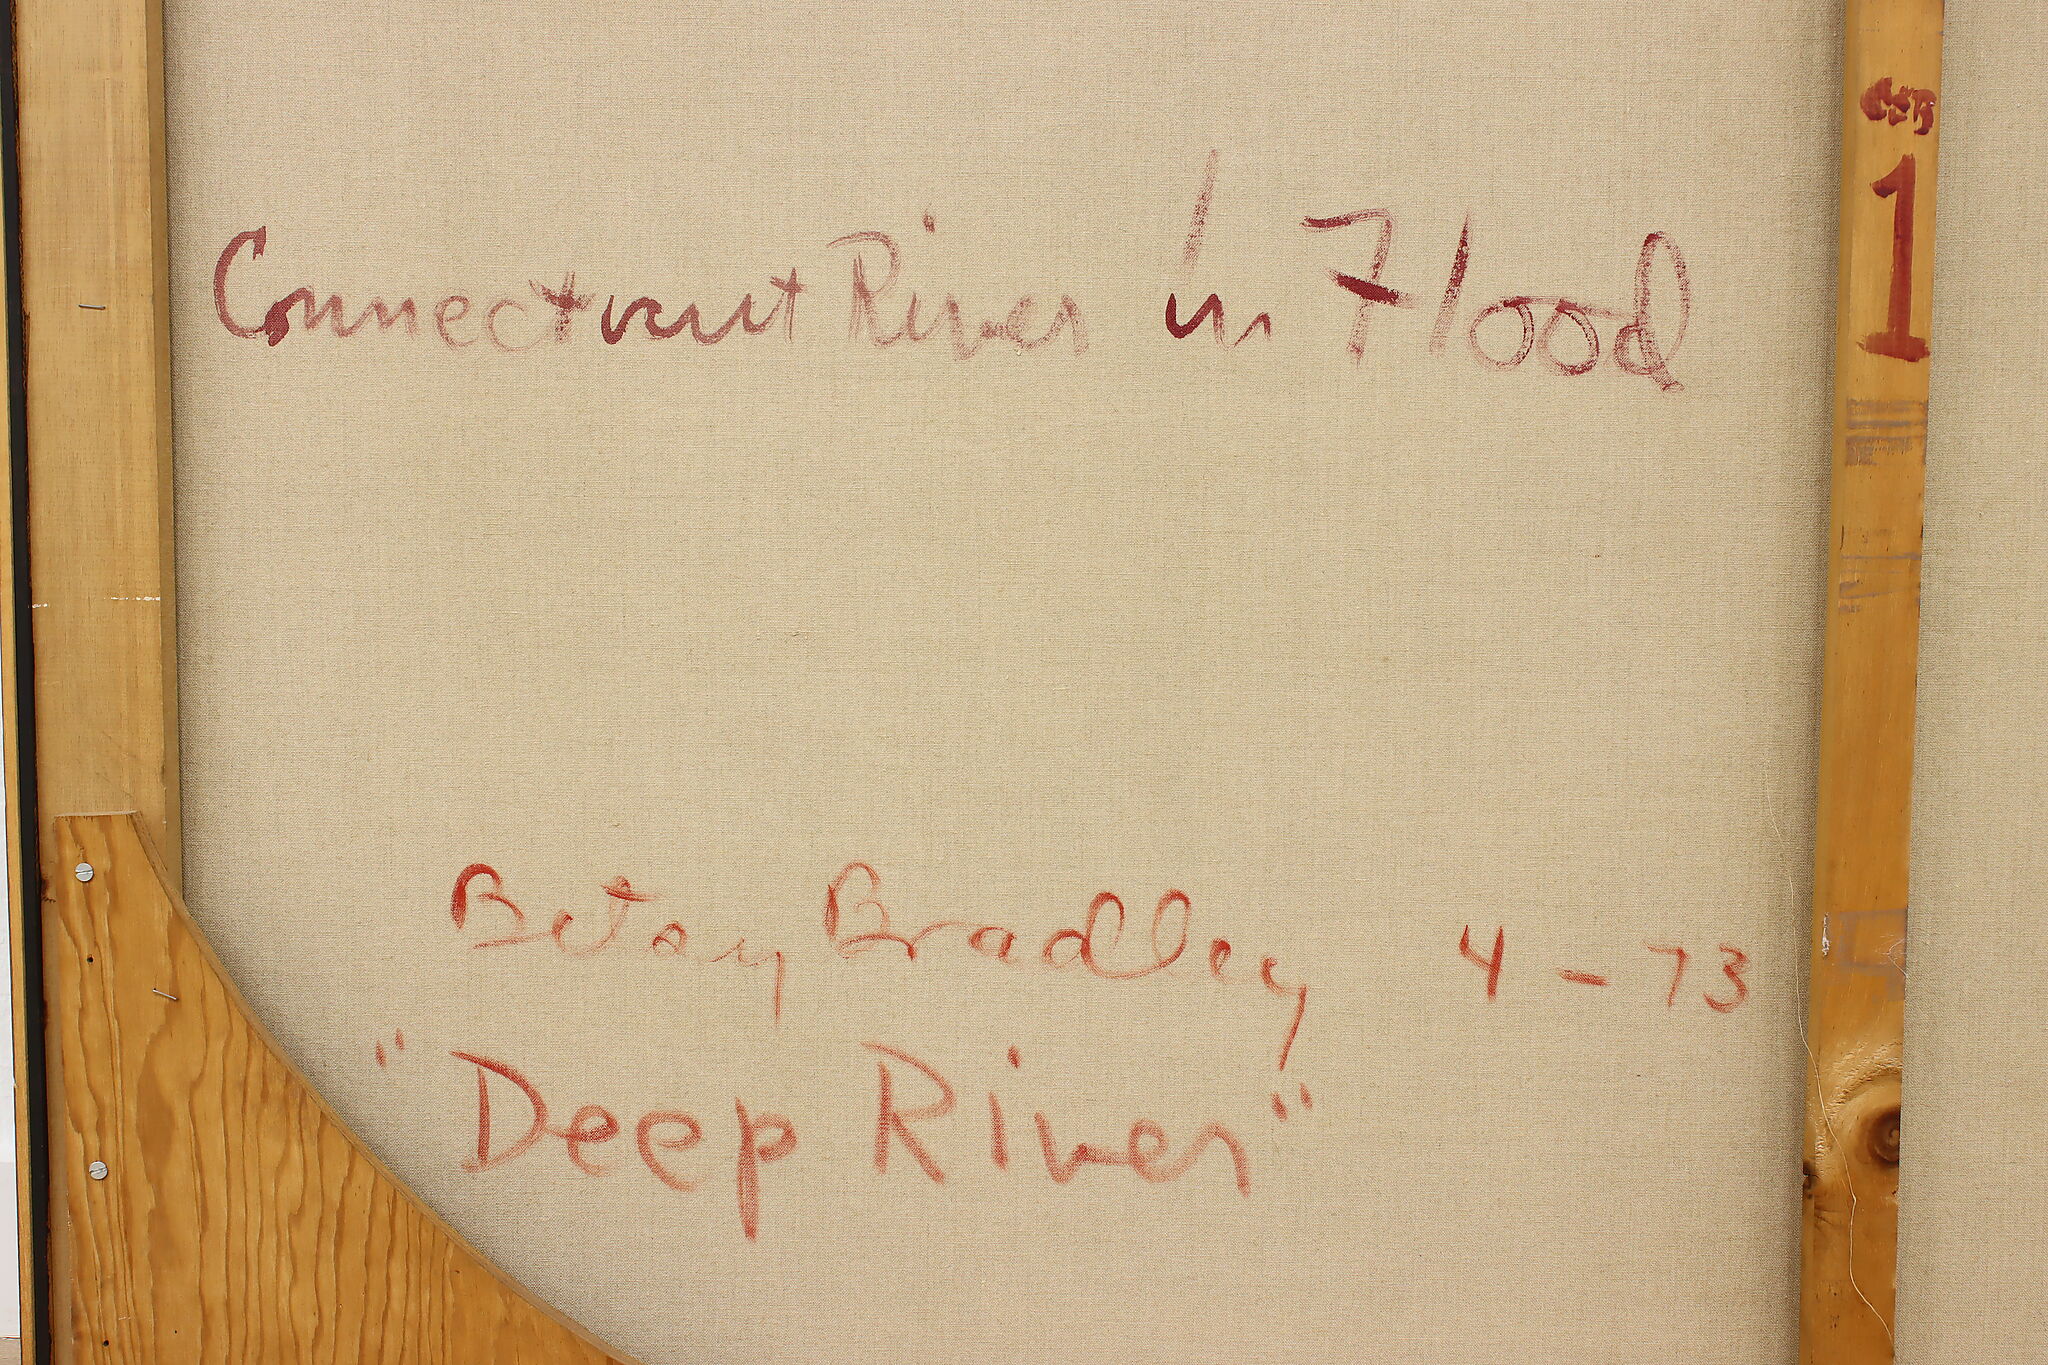 Connecticut River in Flood
1
Betsy Bradley 4-73
"Deep River"